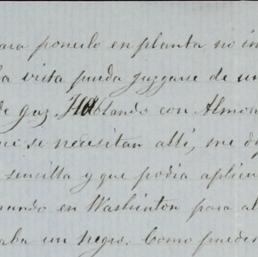 para ponerlo en planta no in
la vista pueda juzgarse de un
de gaz. Hablando con Almon
que se necesitan allí, me di
sencilla y que podia aplicar
mundo en Washinton para al
aba un negro. Como puedes